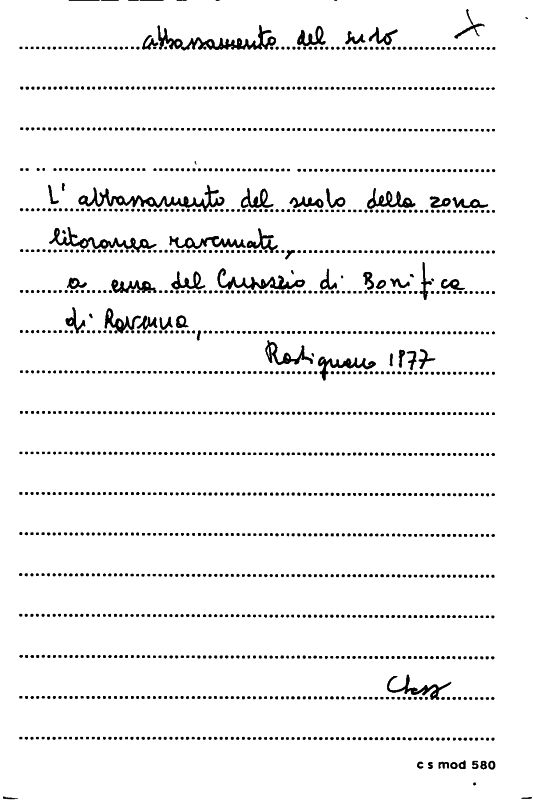 abbassamento del suolo
L'abbassamento del suolo della zona
litoranea ravennate,
a cura del Consorzio di Bonifica
di Ravenna,
Rastignano 1977
Class
c s mod 580